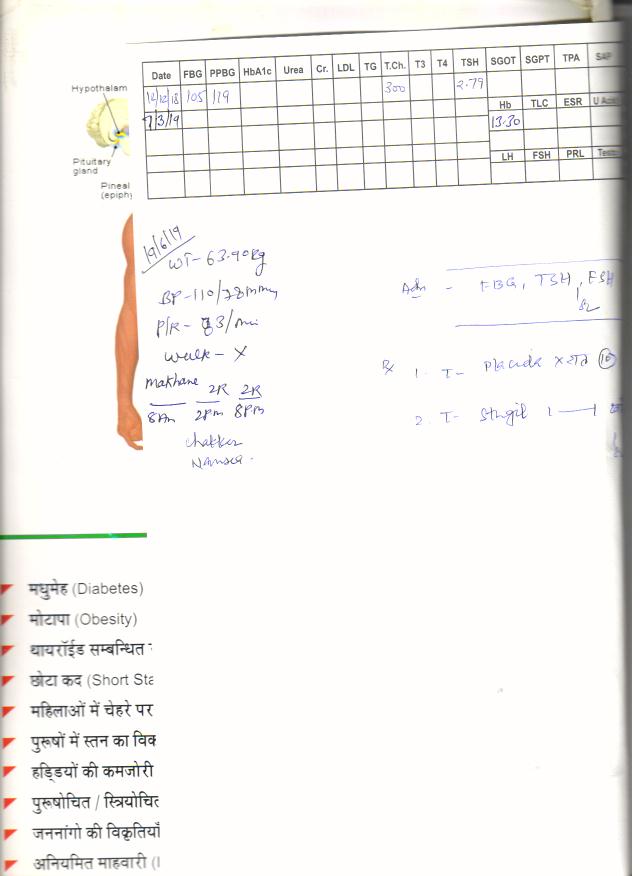 Hypothalam
Pituitary
gland
Pineal
(epiphy
Date FBG PPBG HbA1c Urea Cr. LDL TG T.Ch. T3 T4 TSH SGOT SGPT TPA SAP
14/12/18 105 119 300 2.79
Hb TLC ESR U Acid
7/3/19 13.30
LH FSH PRL Testo
19/6/19
WT- 63.90kg
BP-110/78mmHg
P/R- 83/min
walk- X
makhane 2R 2R
8Am 2Pm 8Pm
chakker
Nausea.
Adv - FBG, TSH, FSH
Rx 1. T- Placida x 10
2. T- Stugil 1 — 1
मधुमेह (Diabetes)
मोटापा (Obesity)
थायरॉईड सम्बन्धित
छोटा कद (Short Sta
महिलाओं में चेहरे पर
पुरूषों में स्तन का विक
हड्डियों की कमजोरी
पुरूषोचित / स्त्रियोचित
जननांगो की विकृतियाँ
अनियमित माहवारी (I